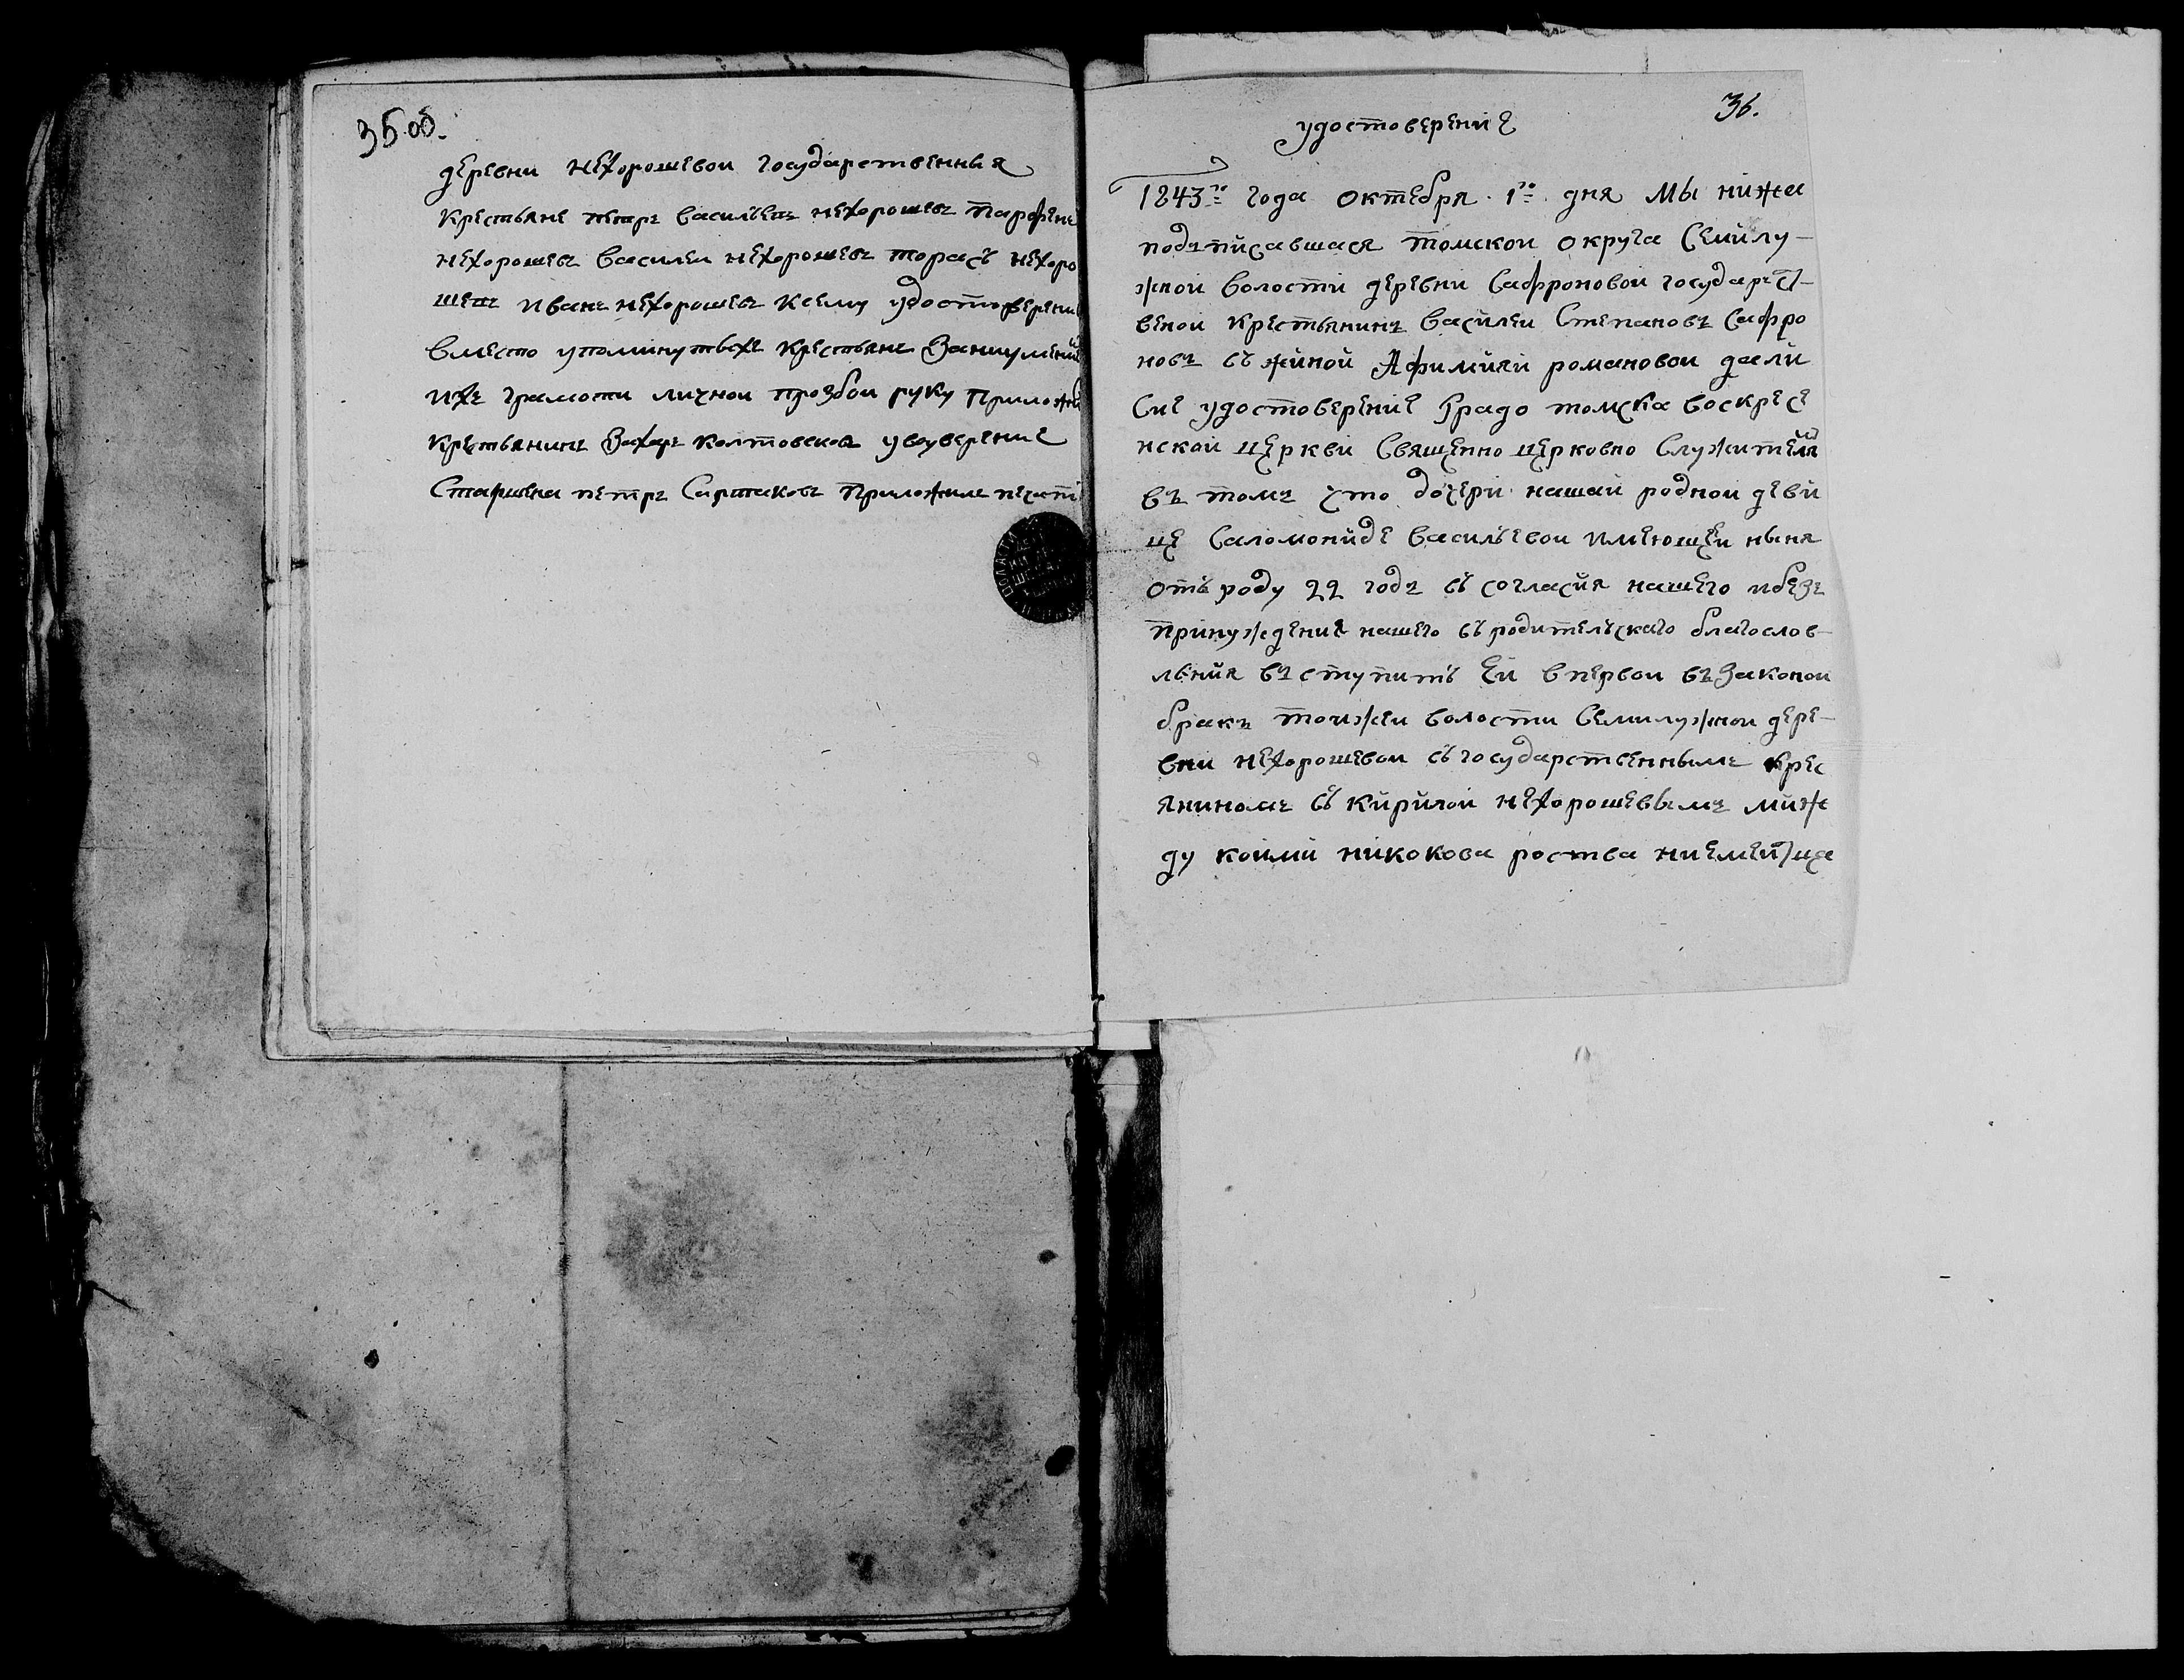 35 об.
деревни нехорошевои государственныя
крестьяне петръ васильевъ нехорошевъ парфенъ
нехорошевъ василеи нехорошевъ торасъ нехоро
шевъ иванъ нехорошевъ ксему удостоверению
вместо упоминутыхъ крестьянъ
ихъ грамоти личнои прозбои руку приложил
крестьянинъ Захаръ колтовсковъ уваверение
Старшена петръ Сартаковъ приложилъ печать
36.
удостоверение
1843го года октебря 1го дня Мы нижеа
подъписавшася томскои округа Семилу-
жнои волости деревни Сафроновои государст-
веной крестьянинъ Василеи Степановъ Сафро
новъ съ жиной Афимияи романовои дали
Сие удостоверение градо томска воскресе
нскои церкви Священно церковно Служителя
въ томъ что дочери нашаи роднои деви
це Саломониде васильевои имеющеи ныня
отъ роду 22 годъ съ согласия нашего ибезъ
принуждение нашего съ родительскаго благослов-
ления въступить еи впервои въ Законои
бракъ тоижеи волости Семилужнои дере-
вни нехорошевои съ государственнымъ крес
яниномъ съ Кирилои нехорошевымъ миж
ду коими никокова роства ниемеитца